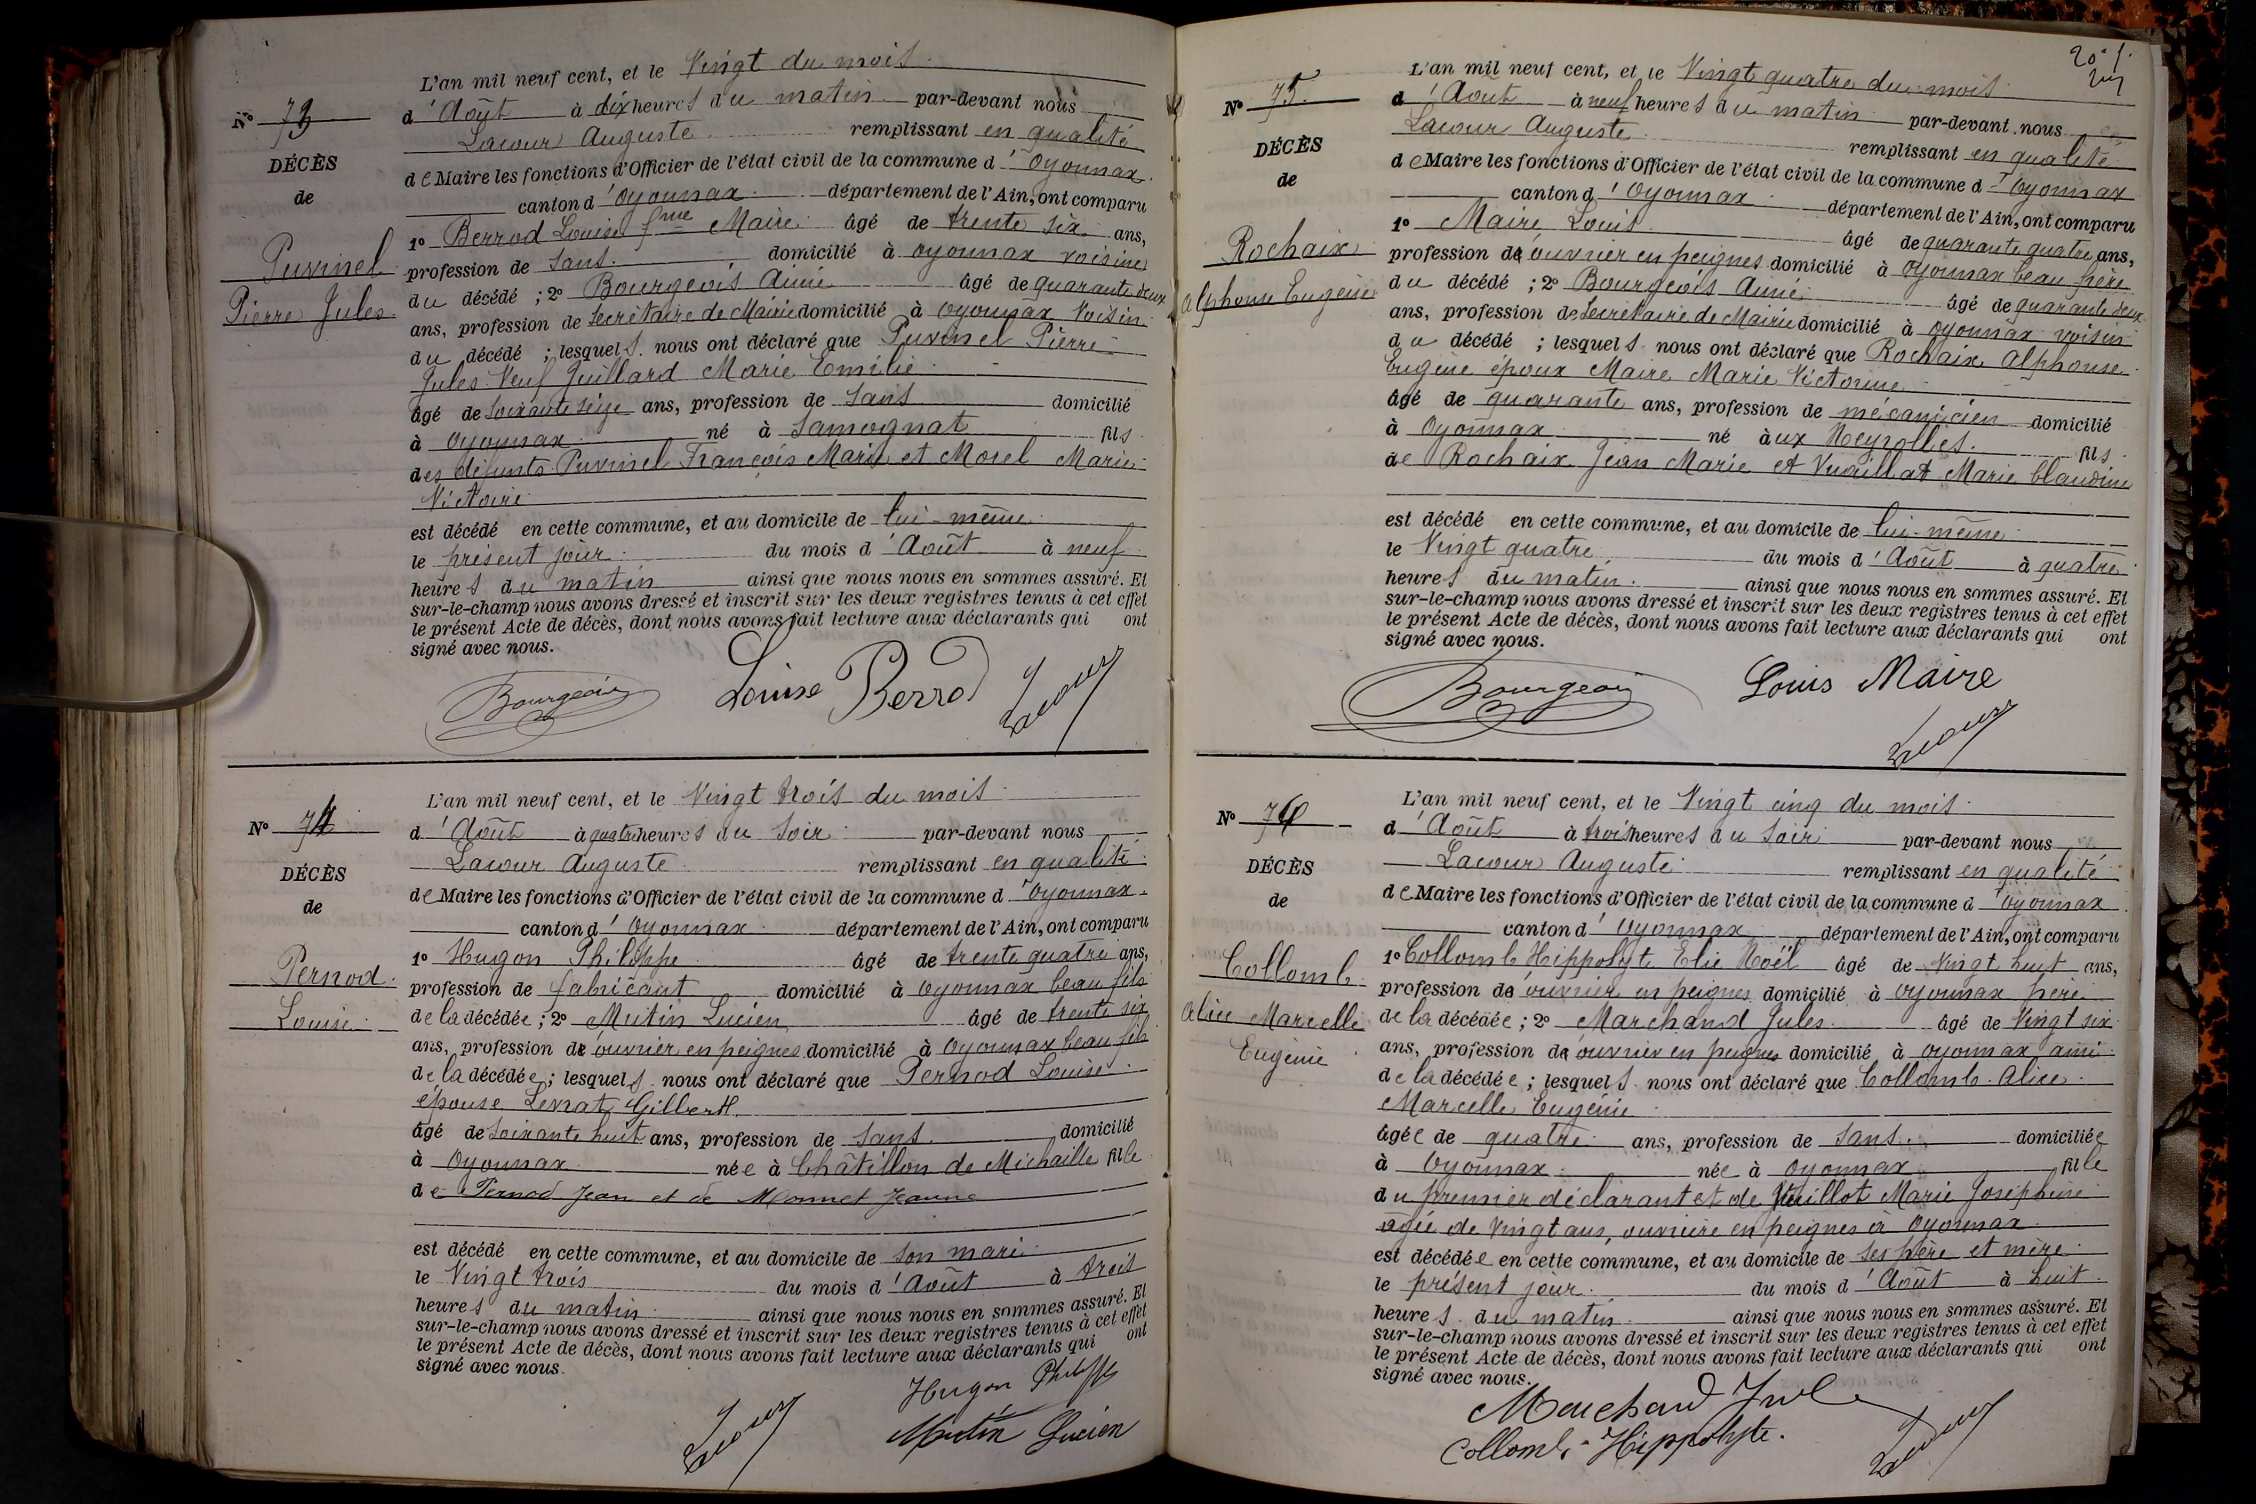 L'an mil neuf cent, et le Vingt du mois
N° 73
d'Août à dix heures du matin par-devant nous
Lacour Auguste remplissant en qualité
DÉCÈS
de Maire les fonctions d'Officier de l'état civil de la commune d'Oyonnax
de
canton d'Oyonnax département de l'Ain, ont comparu
1° Berrod Louise fme Maire âgé de trente six ans,
Puvinel
profession de sans domicilié à Oyonnax voisine
Pierre Jules
du décédé ; 2° Bourgeois Aimé âgé de quarante deux
ans, profession de Secrétaire de Mairie domicilié à Oyonnax Voisin
du décédé ; lesquels nous ont déclaré que Puvinel Pierre
Jules Veuf Juillard Marie Emilie
âgé de soixante seize ans, profession de sans domicilié
à Oyonnax né à Samognat fils
des défunts Puvinel François Marie et Morel Marie
Victoire
est décédé en cette commune, et au domicile de lui-même
le présent jour du mois d'Août à neuf
heures du matin ainsi que nous nous en sommes assuré. Et
sur-le-champ nous avons dressé et inscrit sur les deux registres tenus à cet effet
le présent Acte de décès, dont nous avons fait lecture aux déclarants qui ont
signé avec nous.
Bourgeois Louise Berrod Lacour
L'an mil neuf cent, et le Vingt trois du mois
N° 74
d'Août à quatre heures du soir par-devant nous
Lacour Auguste remplissant en qualité
DÉCÈS
de Maire les fonctions d'Officier de l'état civil de la commune d'Oyonnax
de
canton d'Oyonnax département de l'Ain, ont comparu
1° Hugon Philippe âgé de trente quatre ans,
Pernod
profession de fabricant domicilié à Oyonnax beau fils
Louise
de la décédée ; 2° Mutin Lucien âgé de trente six
ans, profession de ouvrier en peignes domicilié à Oyonnax beau fils
de la décédée ; lesquels nous ont déclaré que Pernod Louise
épouse Levrat Gilbert
âgé de soixante huit ans, profession de sans domicilié
à Oyonnax née à Châtillon de Michaille fille
de Pernod Jean et de Monnet Jeanne
est décédé en cette commune, et au domicile de son mari
le Vingt trois du mois d'Août à trois
heures du matin ainsi que nous nous en sommes assuré. Et
sur-le-champ nous avons dressé et inscrit sur les deux registres tenus à cet effet
le présent Acte de décès, dont nous avons fait lecture aux déclarants qui ont
signé avec nous.
Hugon Philippe
Lacour Mutin Lucien
L'an mil neuf cent, et le Vingt quatre du mois
N° 75
d'Août à neuf heures du matin par-devant nous
Lacour Auguste remplissant en qualité
DÉCÈS
de Maire les fonctions d'Officier de l'état civil de la commune d'Oyonnax
de
canton d'Oyonnax département de l'Ain, ont comparu
1° Maire Louis âgé de quarante quatre ans,
Rochaix
profession de ouvrier en peignes domicilié à Oyonnax beau frère
Alphonse Eugène
du décédé ; 2° Bourgeois Aimé âgé de quarante deux
ans, profession de Secrétaire de Mairie domicilié à Oyonnax voisin
du décédé ; lesquels nous ont déclaré que Rochaix Alphonse
Eugène époux Maire Marie Victorine
âgé de quarante ans, profession de mécanicien domicilié
à Oyonnax né aux Neyrolles fils
de Rochaix Jean Marie et Vuaillat Marie Claudine
est décédé en cette commune, et au domicile de lui-même
le Vingt quatre du mois d'Août à quatre
heures du matin ainsi que nous nous en sommes assuré. Et
sur-le-champ nous avons dressé et inscrit sur les deux registres tenus à cet effet
le présent Acte de décès, dont nous avons fait lecture aux déclarants qui ont
signé avec nous.
Bourgeois Louis Maire
Lacour
L'an mil neuf cent, et le Vingt cinq du mois
N° 76
d'Août à trois heures du soir par-devant nous
Lacour Auguste remplissant en qualité
DÉCÈS
de Maire les fonctions d'Officier de l'état civil de la commune d'Oyonnax
de
canton d'Oyonnax département de l'Ain, ont comparu
1° Collomb Hippolyte Elie Noël âgé de Vingt huit ans,
Collomb
profession de ouvrier en peignes domicilié à Oyonnax père
Alice Marcelle
de la décédée ; 2° Marchand Jules âgé de Vingt six
Eugénie
ans, profession de ouvrier en peignes domicilié à Oyonnax ami
de la décédée ; lesquels nous ont déclaré que Collomb Alice
Marcelle Eugénie
âgée de quatre ans, profession de sans domiciliée
à Oyonnax née à Oyonnax fille
du premier déclarant et de Guillot Marie Joséphine
âgée de Vingt ans, ouvrière en peignes à Oyonnax
est décédée en cette commune, et au domicile de ses père et mère
le présent jour du mois d'Août à huit
heures du matin ainsi que nous nous en sommes assuré. Et
sur-le-champ nous avons dressé et inscrit sur les deux registres tenus à cet effet
le présent Acte de décès, dont nous avons fait lecture aux déclarants qui ont
signé avec nous.
Marchand Jules
Collomb Hippolyte. Lacour